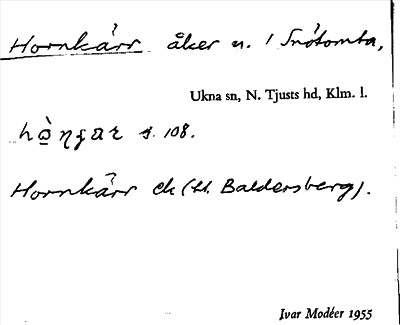 Hornkärr åker n. 1 Snötomta,
Ukna sn, N. Tjusts hd, Klm. l.
s. 108.
Hornkärr ek (bl. Baldersberg).
Ivar Modéer 1955